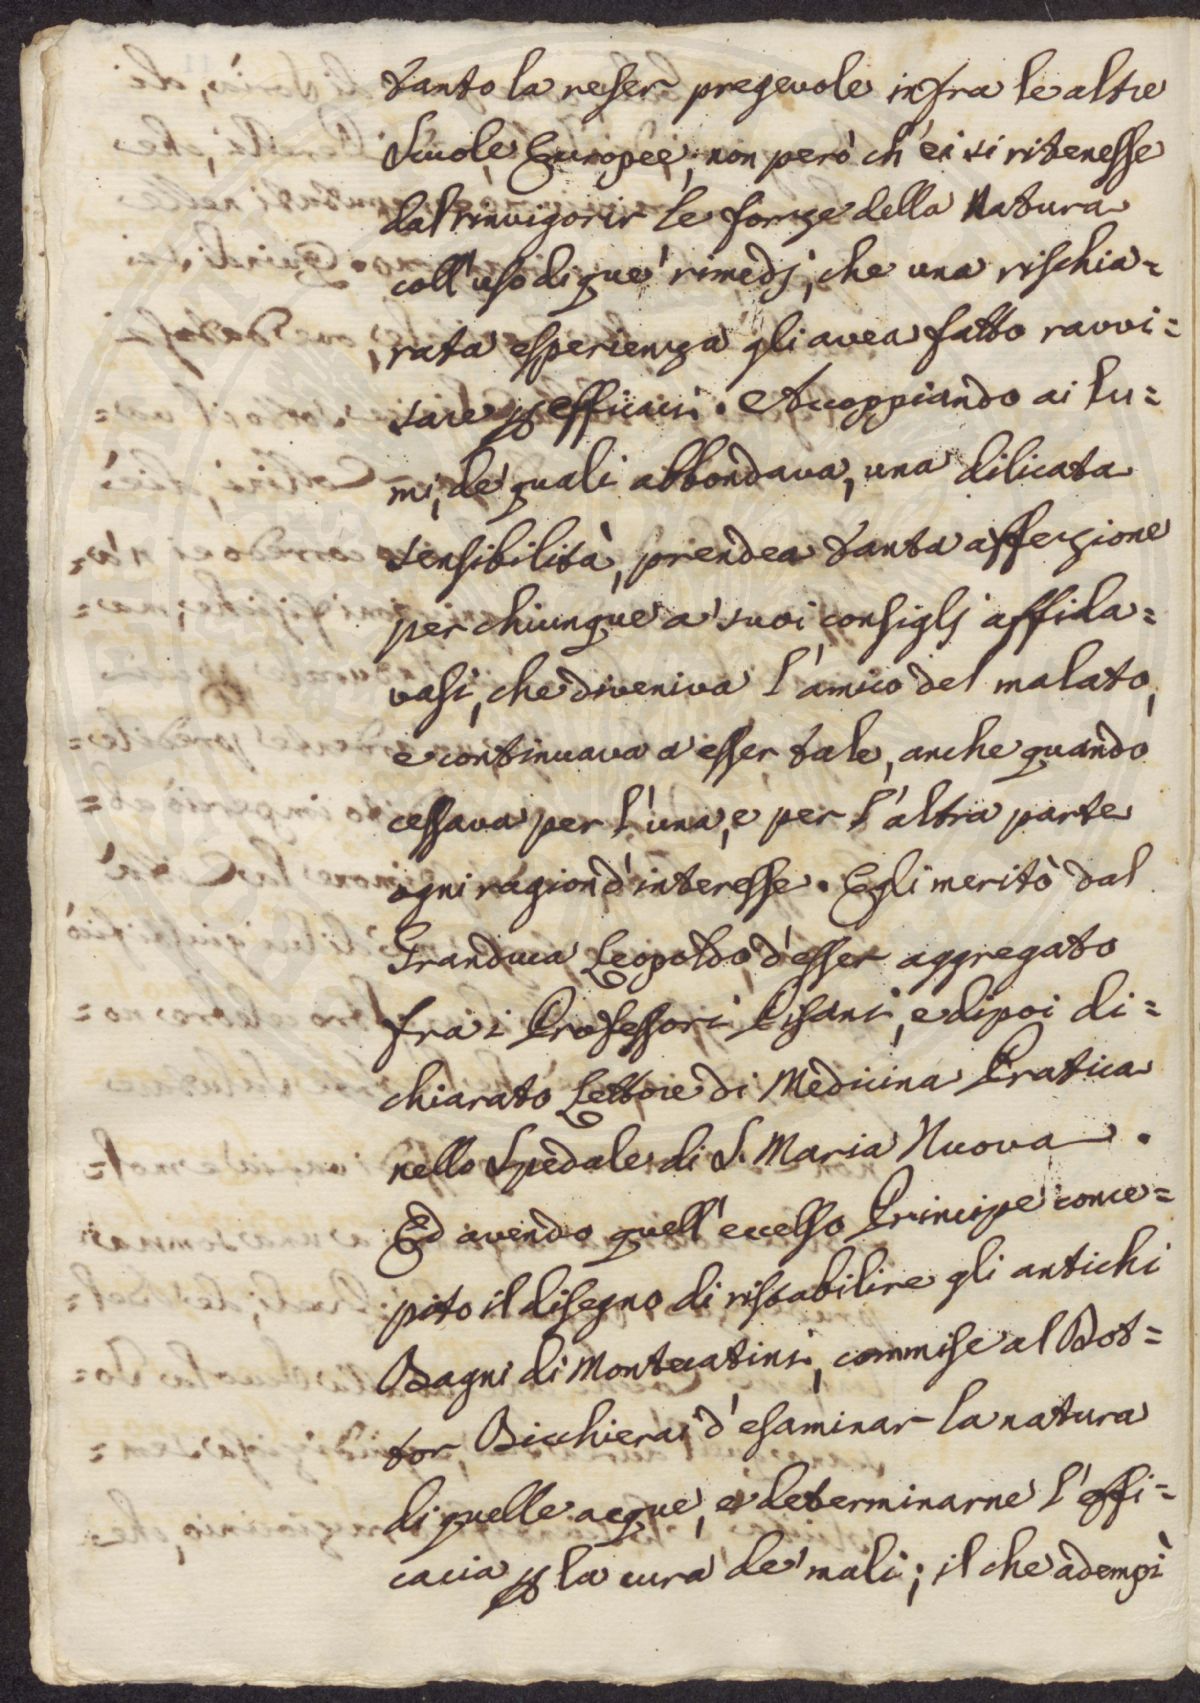 tanto la reser pregevole infra le altre
Scuole Europee, non però ch'ei si ritenesse
dal rinvigorir le forze della Natura
coll'uso di que' rimedj, che una rischia=
rata esperienza gli avea fatto ravvi=
sare efficaci. Accoppiando ai lu=
mi, de' quali abbondava, una dilicata
sensibilità, prendea tanta affezione
per chiunque a' suoi consiglj affida=
vasi, che diveniva l'amico del malato,
e continuava a esser tale, anche quando
cessava per l'una, e per l'altra parte
ogni ragion d'interesse. Egli meritò dal
Granduca Leopoldo d'esser aggregato
fra i Professori Pisani, e dipoi di=
chiarato Lettore di Medicina Pratica
nello Spedale di S. Maria Nuova.
Ed avendo quell'eccelso Principe conce=
pito il disegno di ristabilire gli antichi
Bagni di Montecatini, commise al Dot=
tor Bicchierai d'esaminar la natura
di quelle acque, e determinarne l'effi=
cacia la cura de' mali; il che adempì